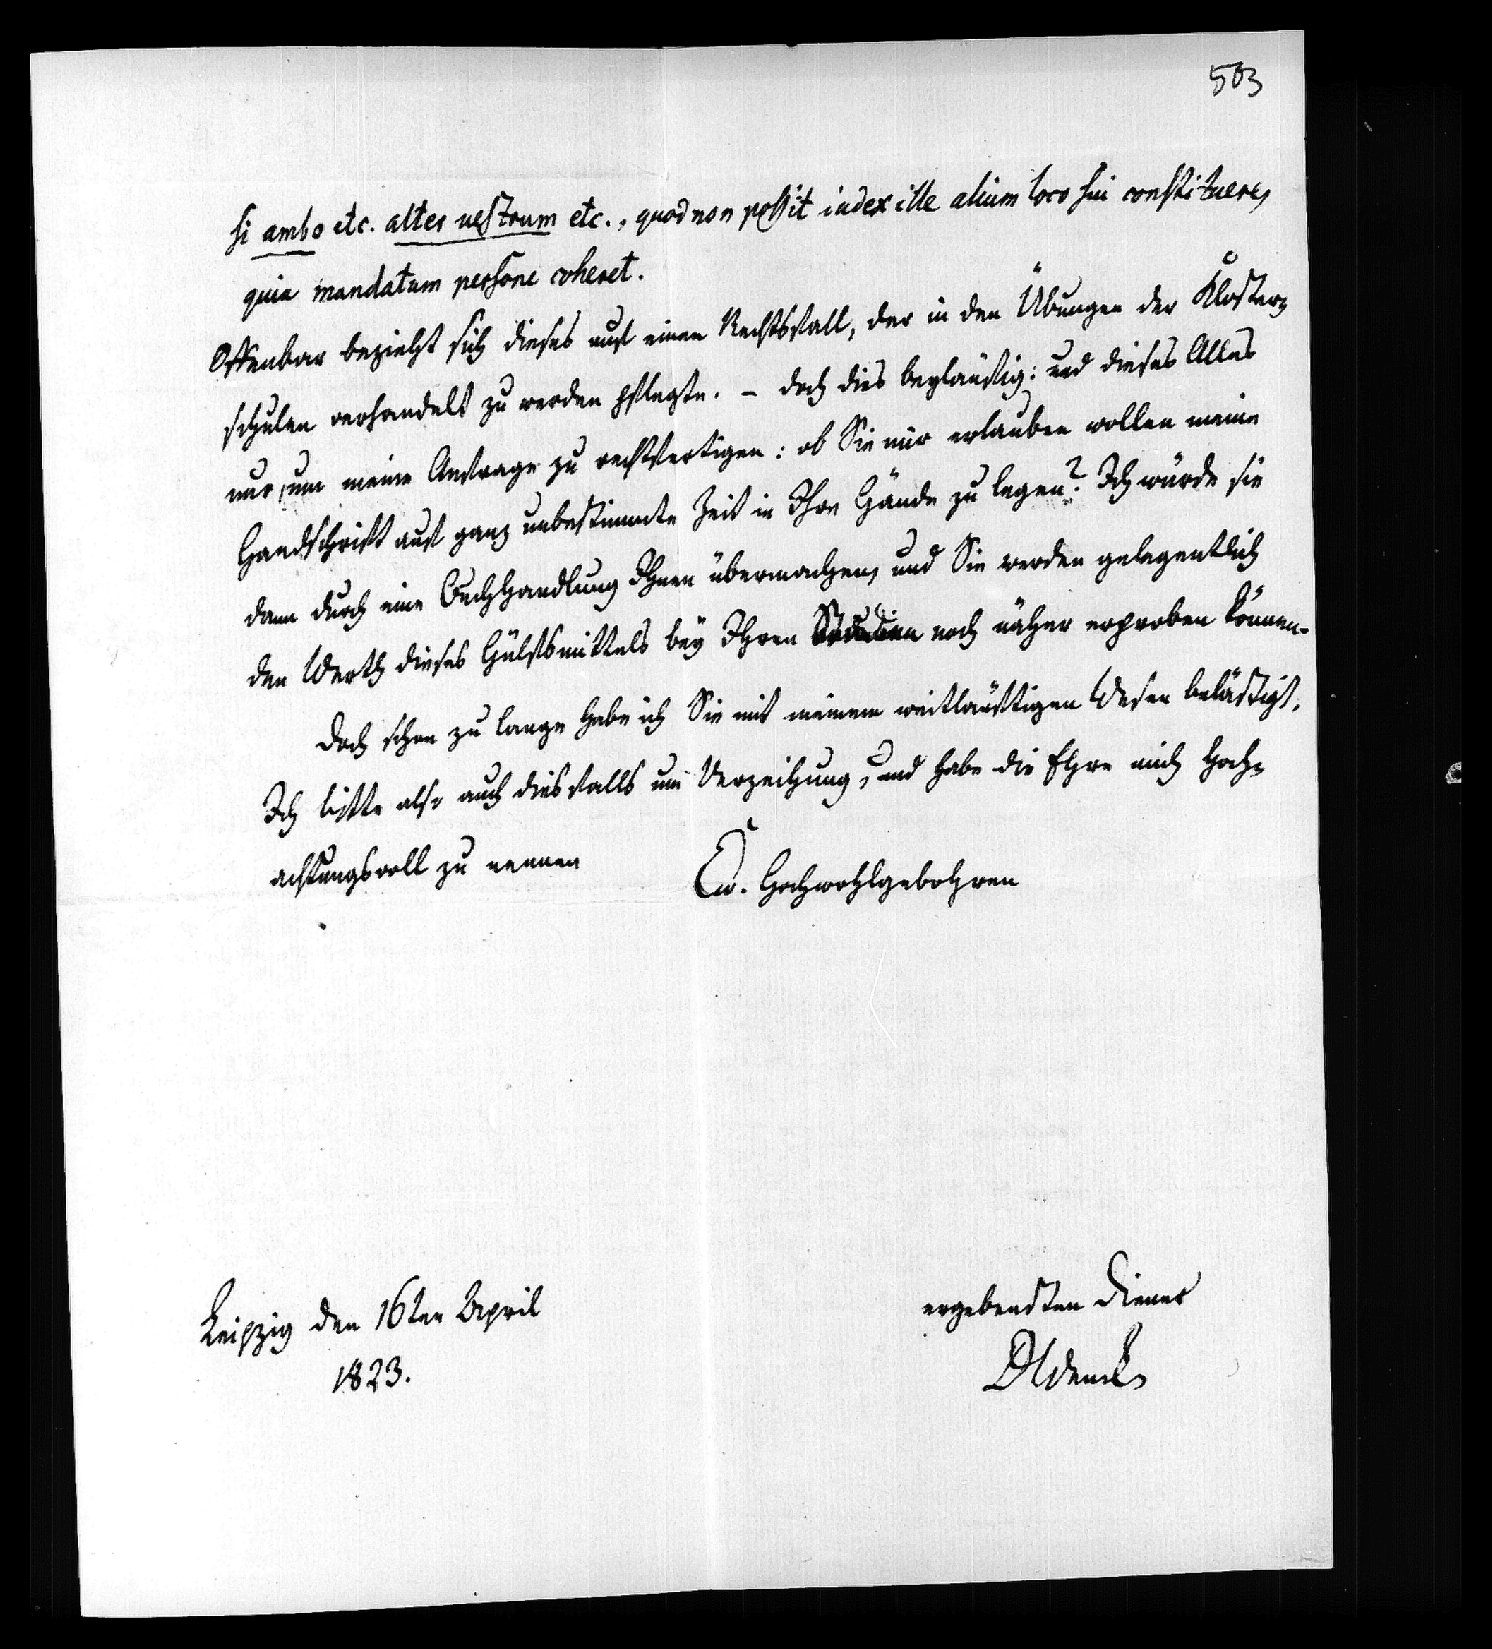 503
si ambo etc. alter uestrum etc., quod non possit iudex ille alium loco sui constituere,
quia mandatum persone coheret.
Offenbar bezieht sich dieses auf einen Rechtsfall, der in den Übungen der Kloster-
schulen verhandelt zu werden pflegte. – doch dies beyläufig: und dieses Alles
nur, um meine Anfrage zu rechtfertigen: ob Sie mir erlauben wollen meine
Handschrift auf ganz unbestimmte Zeit in Ihre Hände zu legen? Ich würde sie
dann durch eine Buchhandlung Ihnen übermachen, und Sie werden gelegentlich
den Werth dieses Hülfsmittels bey Ihren Studien noch näher erproben können.
Doch schon zu lange habe ich Sie mit meinem weitläuftigen Wesen belästigt.
Ich bitte also auch diesfalls um Verzeihung, und habe die Ehre mich hoch-
achtungsvoll zu nennen
Ew. Hochwohlgebohren
ergebensten Diener
Leipzig den 16ten April
1823.